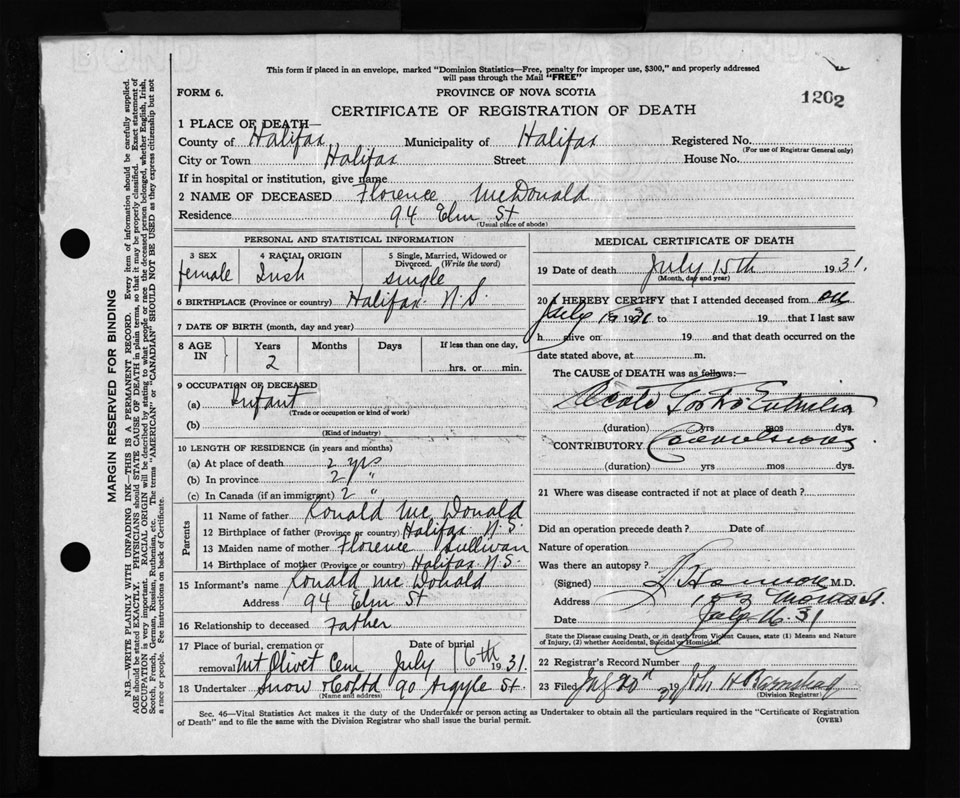 This form if placed in an envelope, marked "Dominion Statistics—Free, penalty for improper use, $300," and properly addressed
will pass through the Mail "FREE"
FORM 6.
PROVINCE OF NOVA SCOTIA
1202
CERTIFICATE OF REGISTRATION OF DEATH
1 PLACE OF DEATH—
County of Halifax Municipality of Halifax Registered No.
(For use of Registrar General only)
City or Town Halifax Street House No.
If in hospital or institution, give name
2 NAME OF DECEASED Florence McDonald
Residence 94 Elm St
(Usual place of abode)
PERSONAL AND STATISTICAL INFORMATION
3 SEX 4 RACIAL ORIGIN 5 Single, Married, Widowed or
Divorced. (Write the word)
female Irish single
6 BIRTHPLACE (Province or country) Halifax N.S.
7 DATE OF BIRTH (month, day and year)
8 AGE IN Years Months Days If less than one day,
2 hrs. or min.
9 OCCUPATION OF DECEASED
(a) Infant
(Trade or occupation or kind of work)
(b)
(Kind of industry)
10 LENGTH OF RESIDENCE (in years and months)
(a) At place of death 2 yrs
(b) In province 2 "
(c) In Canada (if an immigrant) 2 "
Parents
11 Name of father Ronald McDonald
12 Birthplace of father (Province or country) Halifax N.S.
13 Maiden name of mother Florence Sullivan
14 Birthplace of mother (Province or country) Halifax N.S.
15 Informant's name Ronald McDonald
Address 94 Elm St
16 Relationship to deceased Father
17 Place of burial, cremation or Date of burial
removal Mt Olivet Cem July 16th 1931.
18 Undertaker Snow & Co Ltd 90 Argyle St.
(Name and address)
MEDICAL CERTIFICATE OF DEATH
19 Date of death July 15th 1931.
(Month, day and year)
20 I HEREBY CERTIFY that I attended deceased from on
July 1931 to 19 that I last saw
h alive on 19 and that death occurred on the
date stated above, at m.
The CAUSE of DEATH was as follows:—
(duration) yrs mos dys.
CONTRIBUTORY Convulsions
(duration) yrs mos dys.
21 Where was disease contracted if not at place of death?
Did an operation precede death? Date of
Nature of operation
Was there an autopsy?
(Signed) M.D.
Address Morris St.
Date July 16. 31
State the Disease causing Death, or in death from Violent Causes, state (1) Means and Nature
of Injury, (2) whether Accidental, Suicidal or Homicidal.
22 Registrar's Record Number
23 Filed 19 John H Barnstead
(Division Registrar)
Sec. 46—Vital Statistics Act makes it the duty of the Undertaker or person acting as Undertaker to obtain all the particulars required in the "Certificate of Registration
of Death" and to file the same with the Division Registrar who shall issue the burial permit.
(OVER)
MARGIN RESERVED FOR BINDING
N.B.—WRITE PLAINLY WITH UNFADING INK—THIS IS A PERMANENT RECORD. Every item of information should be carefully supplied.
AGE should be stated EXACTLY. PHYSICIANS should STATE CAUSE OF DEATH in plain terms, so that it may be properly classified. Exact statement of
OCCUPATION is very important. RACIAL ORIGIN will be described by stating to what people or race the deceased person belonged, whether English, Irish,
Scotch, French, German, Russian, Ruthenian, etc. The terms "AMERICAN" or "CANADIAN" SHOULD NOT BE USED as they express citizenship but not
a race or people. See instructions on back of Certificate.